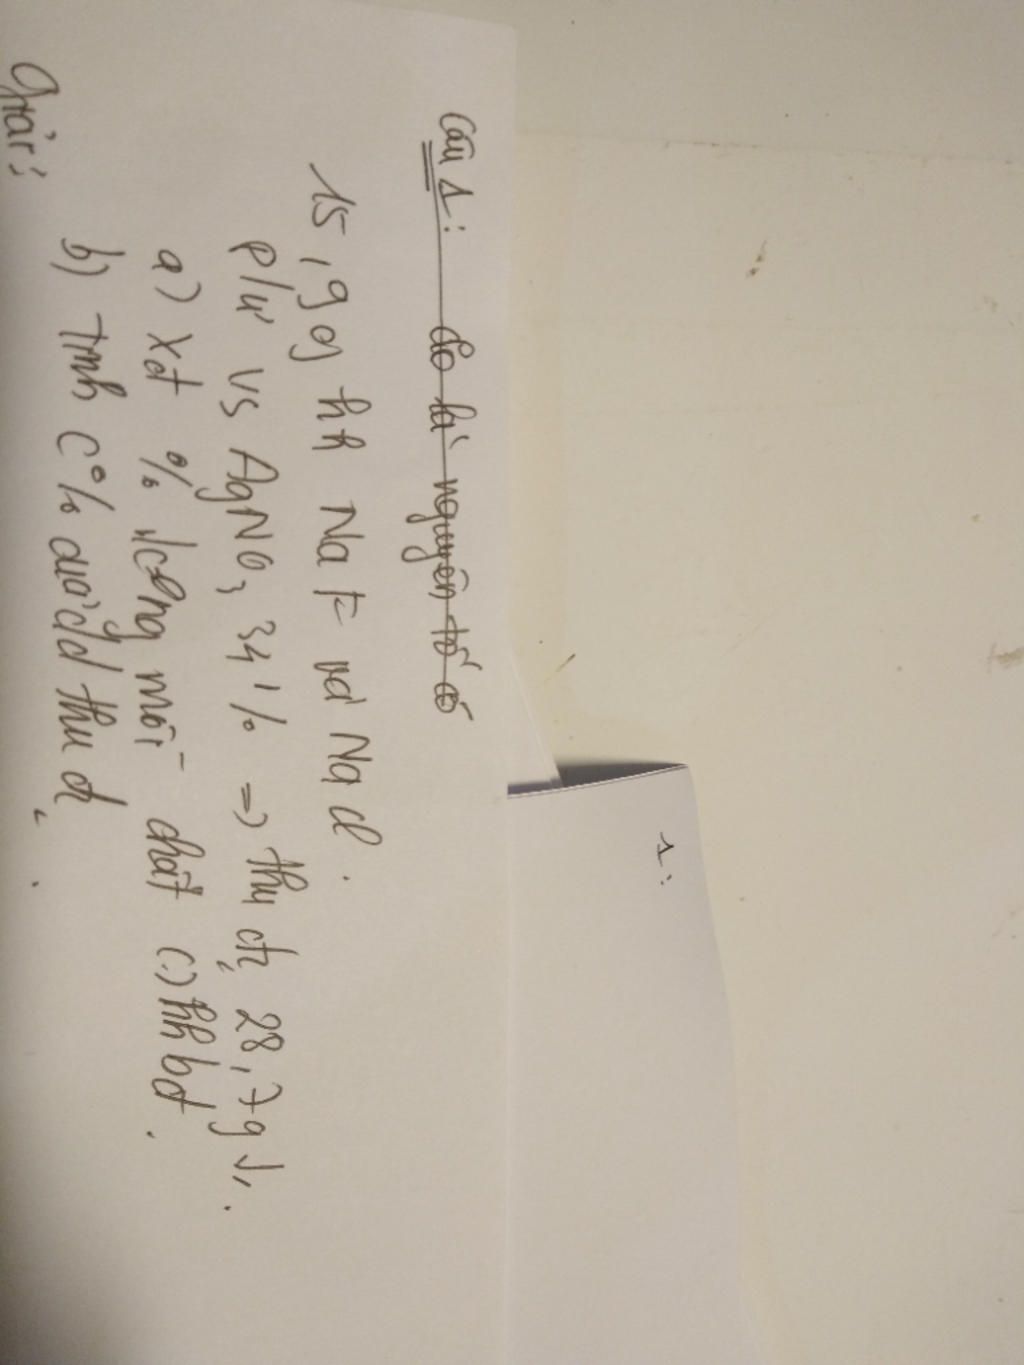 Câu 1: đo là nguyên tố có
15,9g hh NaF và NaCl.
p/ư vs AgNO3 34% => thu đc 28,7g ↓.
a) Xđ % lượng mỗi chất (:) hh bđ.
b) Tính C% dd thu đc.
Giải:
1: